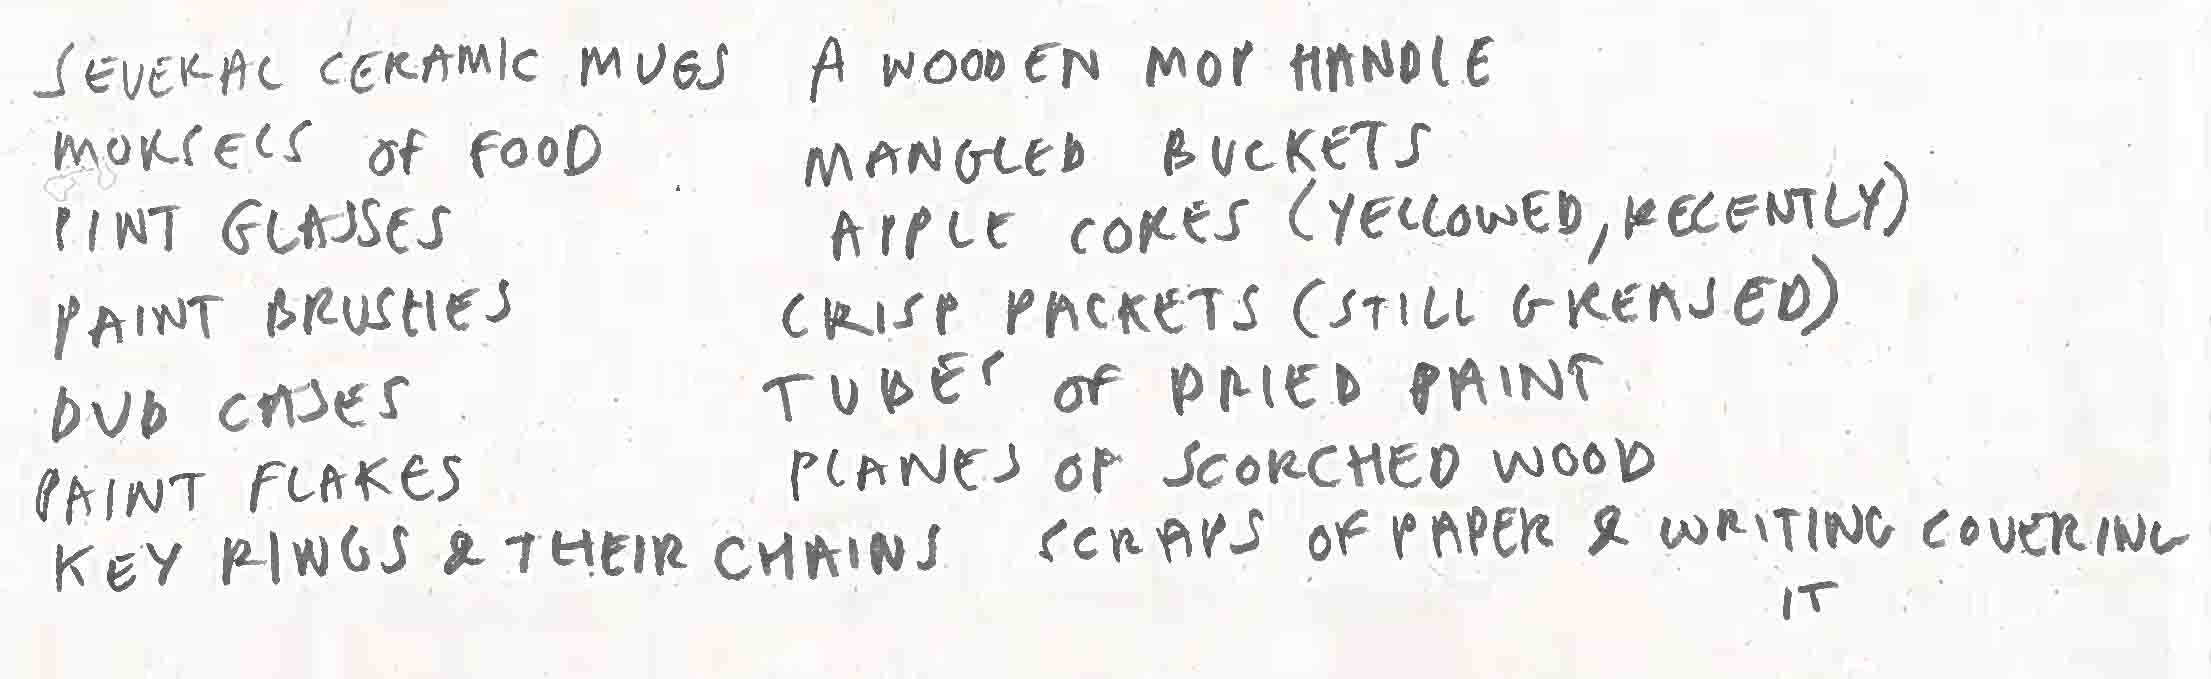 SEVERAL CERAMIC MUGS
MORSELS OF FOOD
PINT GLASSES
PAINT BRUSHES
DVD CASES
PAINT FLAKES
KEY RINGS & THEIR CHAINS
A WOODEN MOP HANDLE
MANGLED BUCKETS
APPLE CORES (YELLOWED, RECENTLY)
CRISP PACKETS (STILL GREASED)
TUBES OF DRIED PAINT
PLANES OF SCORCHED WOOD
SCRAPS OF PAPER & WRITING COVERING
IT